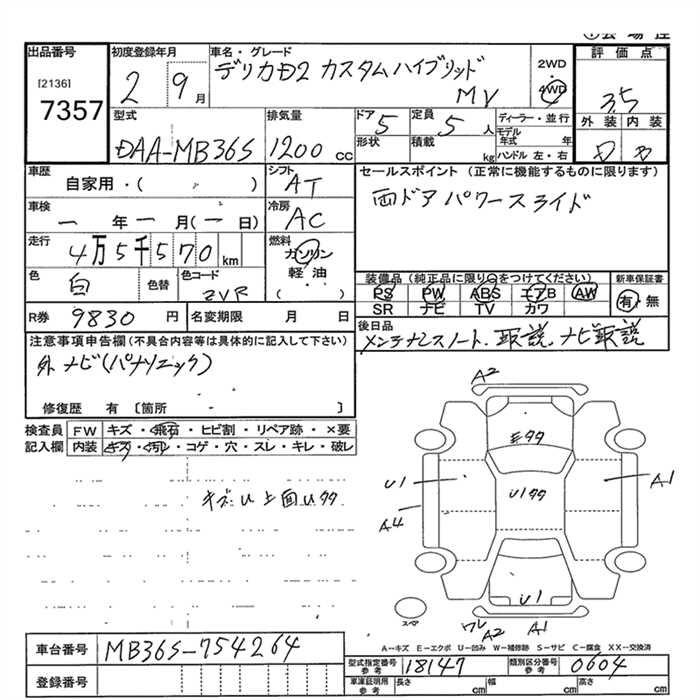 出品番号
[2136]
7357
初度登録年月
2 9月
車名・グレード
デリカD2 カスタムハイブリッド
MV
2WD
4WD
評価点
3.5
外装 内装
型式
DAA-MB36S
排気量
1200 cc
ドア 5
形状
定員 5 人
積載 kg
ディーラー・並行
モデル年式 年
ハンドル 左・右
車歴
自家用・( )
シフト
AT
車検
一 年 一 月(一 日)
冷房
AC
走行
4万5千570km
燃料
ガソリン
軽油
( )
色
白
色替
色コード
ZVR
R券 9830 円
名変期限 月 日
セールスポイント(正常に機能するものに限ります)
両ドア パワースライド
装備品(純正品に限り○をつけてください)
PS PW ABS エアB AW
SR ナビ TV カワ
新車保証書
有・無
後日品
メンテナンスノート、取説、ナビ取説
注意事項申告欄(不具合内容等は具体的に記入して下さい)
外ナビ(パナソニック)
修復歴 有〔箇所 - 〕
検査員
記入欄
FW キズ・飛石・ヒビ割・リペア跡・×要
内装 キズ・汚れ・コゲ・穴・スレ・キレ・破レ
キズU 上面Uタタ
A2
Eタタ
U1
A4
U1タタ
A1
U1
ワレ
A2
A1
スペア
A−キズ E−エクボ U−凹み W−補修跡 S−サビ C−腐食 XX−交換済
車台番号 MB36S-754264
登録番号
型式指定番号
参考
18147
類別区分番号
参考
0604
車庫証明用
参考
長さ cm
幅 cm
高さ cm